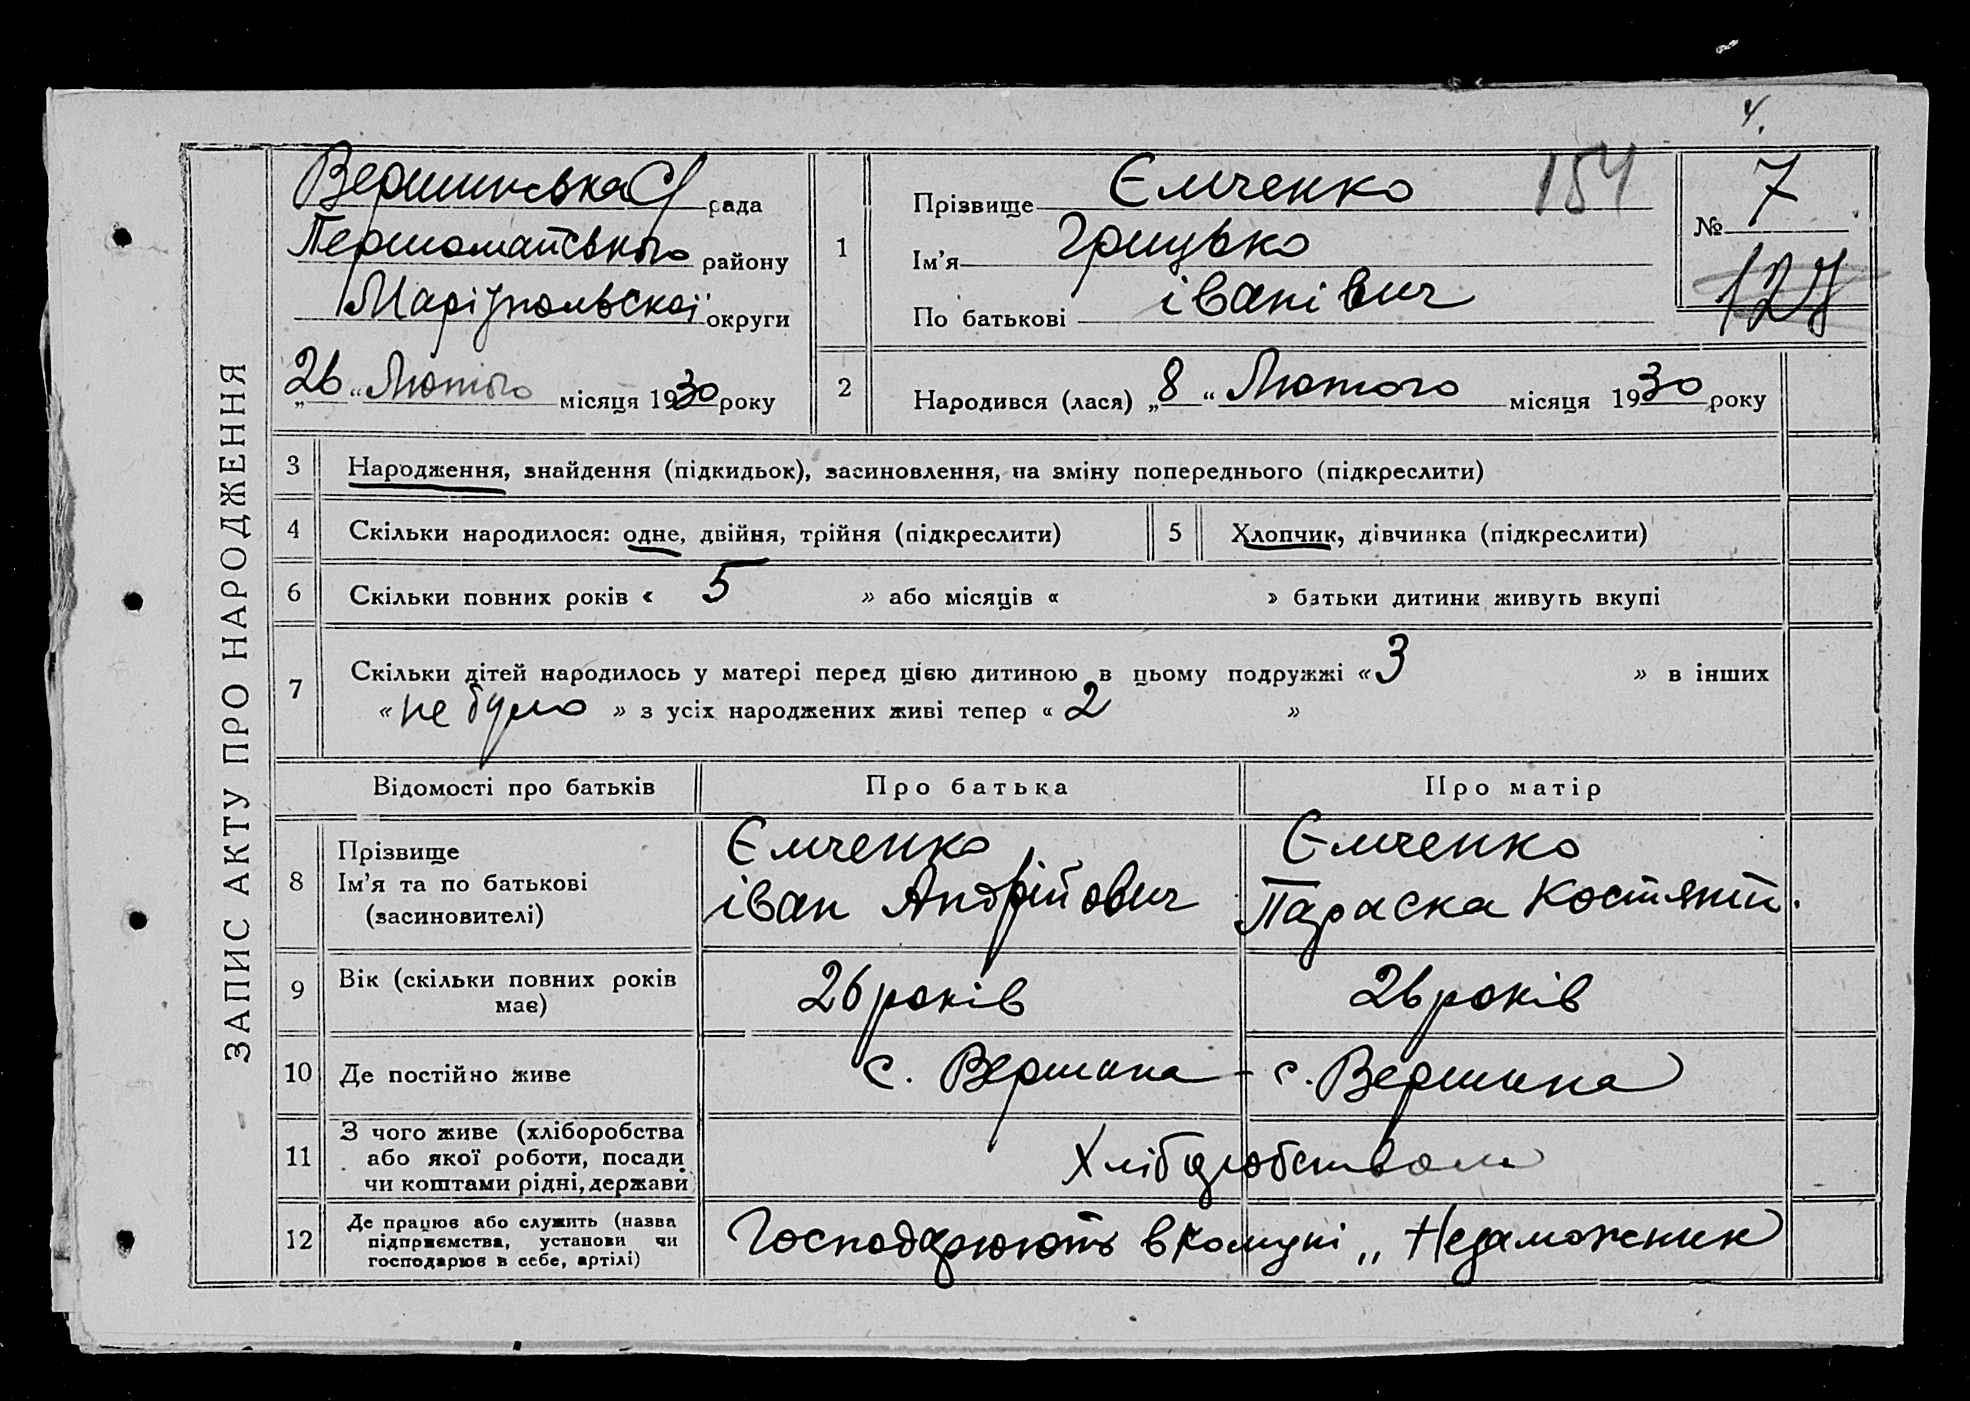 ч.
ЗАПИС АКТУ ПРО НАРОДЖЕННЯ
Вершинська С/рада
Першомайського району
Маріупольської округи
„26“ Лютого місяця 1930 року
1
Прізвище Ємченко 154
Ім'я Грицько
По батькові іванівич
№ 7
127
2
Народився (лася) „8“ Лютого місяця 1930 року
3 Народження, знайдення (підкидьок), засиновлення, на зміну попереднього (підкреслити)
4 Скільки народилося: одне, двійня, трійня (підкреслити) 5 Хлопчик, дівчинка (підкреслити)
6 Скільки повних років « 5 » або місяців « » батьки дитини живуть вкупі
7 Скільки дітей народилось у матері перед цією дитиною в цьому подружжі « 3 » в інших
« не було » з усіх народжених живі тепер « 2 »
Відомості про батьків Про батька Про матір
8 Прізвище Ім'я та по батькові (засиновителі)
Ємченко Ємченко
іван Андрійович Параска Костянт.
9 Вік (скільки повних років має) 26 років 26 років
10 Де постійно живе с. Вершина - с. Вершина
11 З чого живе (хліборобства або якої роботи, посади чи коштами рідні, держави Хліборобством
12 Де працює або служить (назва підприємства, установи чи господарює в себе, артілі) Господарюють в комуні „Недаможник